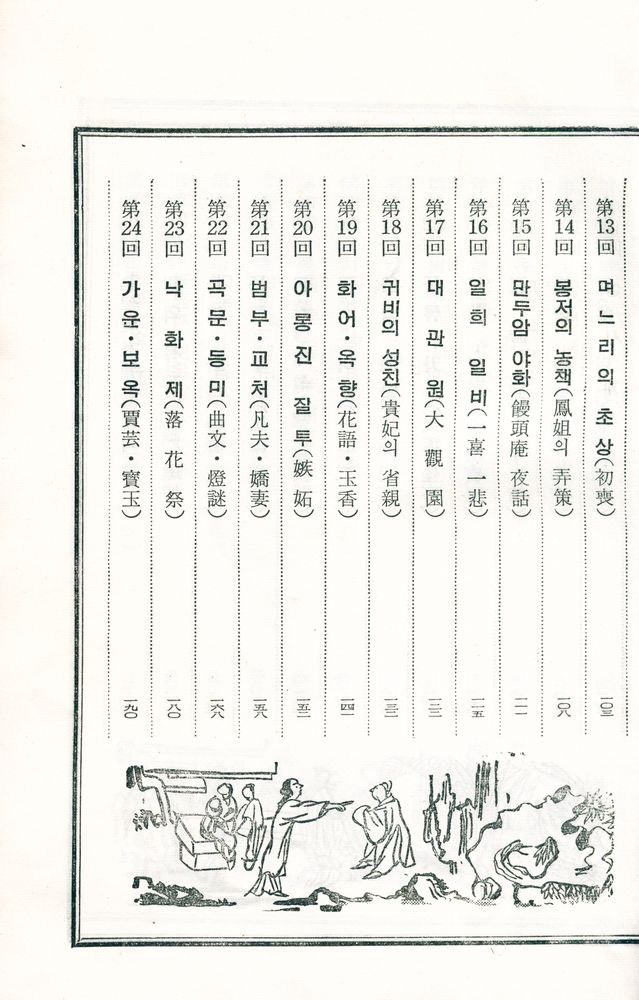 第13回 며느리의 초상(初喪) 一○三
第14回 봉저의 농책(鳳姐의 弄策) 一○八
第15回 만두암 야화(饅頭庵 夜話) 一一一
第16回 일희 일비(一喜 一悲) 一一五
第17回 대관원(大觀園) 一二三
第18回 귀비의 성친(貴妃의 省親) 一三二
第19回 화어·옥향(花語·玉香) 一四一
第20回 아롱진 질투(嫉妬) 一五二
第21回 범부·교처(凡夫·嬌妻) 一五八
第22回 곡문·등미(曲文·燈謎) 一六八
第23回 낙화제(落花祭) 一八○
第24回 가운·보옥(賈芸·寶玉) 一九○